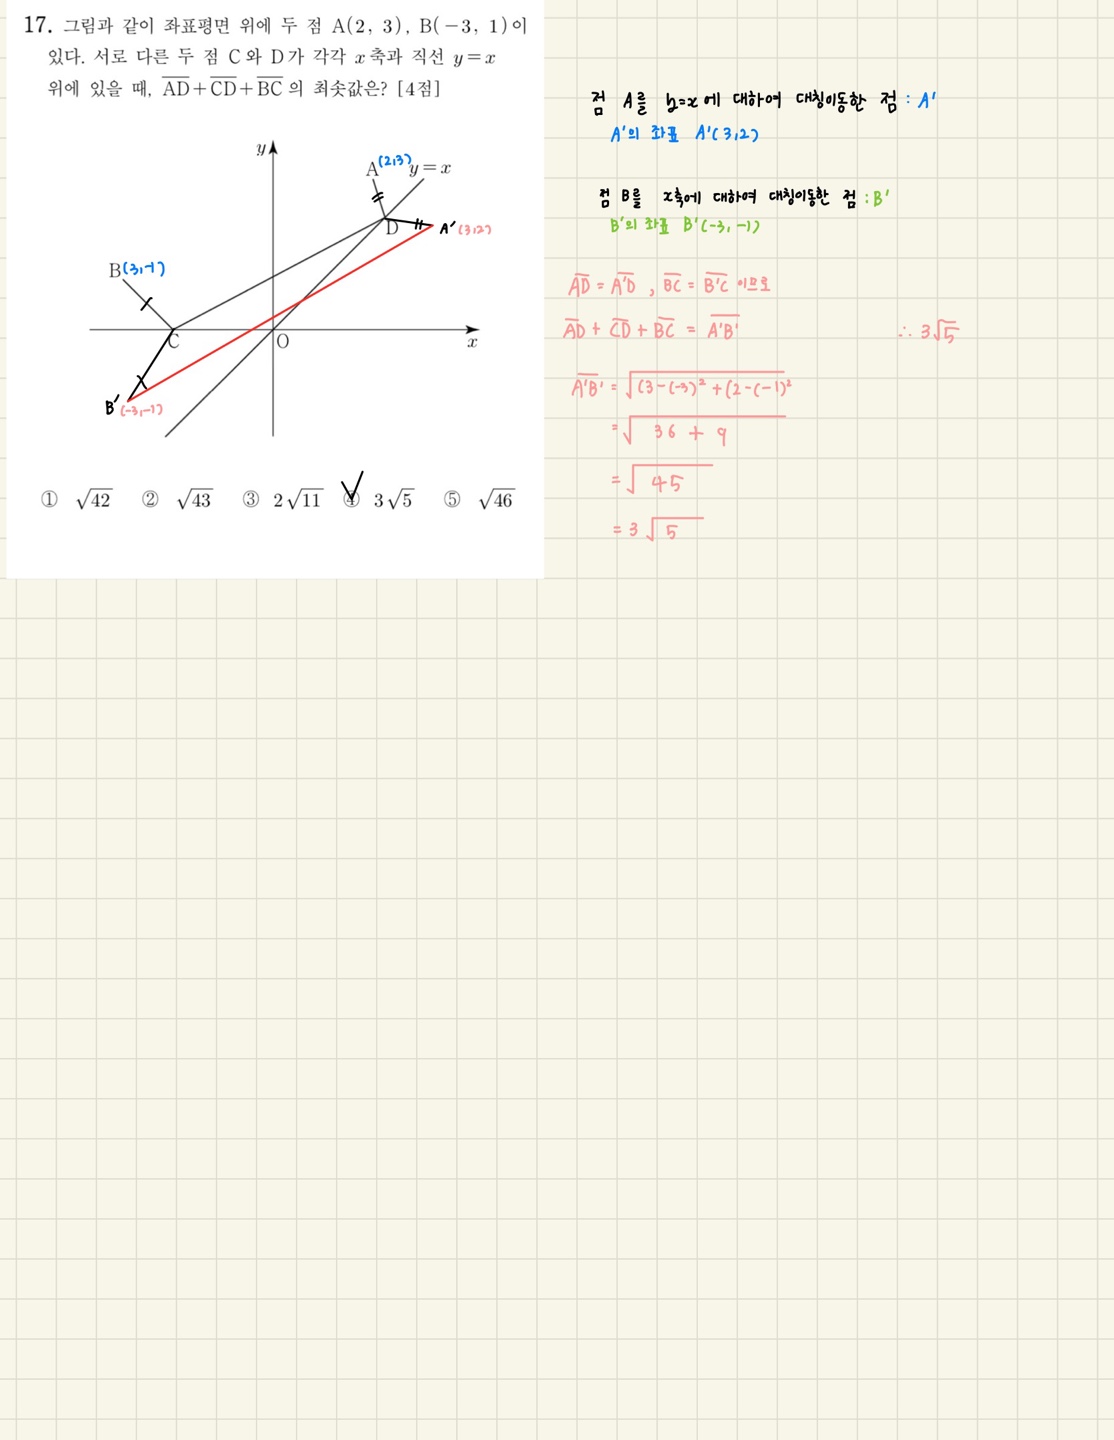 17. 그림과 같이 좌표평면 위에 두 점 A(2, 3), B(−3, 1)이
있다. 서로 다른 두 점 C와 D가 각각 x축과 직선 y=x
위에 있을 때, \overline{AD}+\overline{CD}+\overline{BC}의 최솟값은? [4점]
y
A(2,3) y=x
D A'(3,2)
B(3,-1)
C O x
B'(-3,-1)
① √42 ② √43 ③ 2√11 ④ 3√5 ⑤ √46
점 A를 y=x에 대하여 대칭이동한 점 : A'
A'의 좌표 A'(3,2)
점 B를 x축에 대하여 대칭이동한 점 : B'
B'의 좌표 B'(-3,-1)
\overline{AD} = \overline{A'D} , \overline{BC} = \overline{B'C} 이므로
\overline{AD} + \overline{CD} + \overline{BC} = \overline{A'B'} ∴ 3√5
\overline{A'B'} = √(3-(-3)² + (2-(-1)²
= √36 + 9
= √45
= 3√5